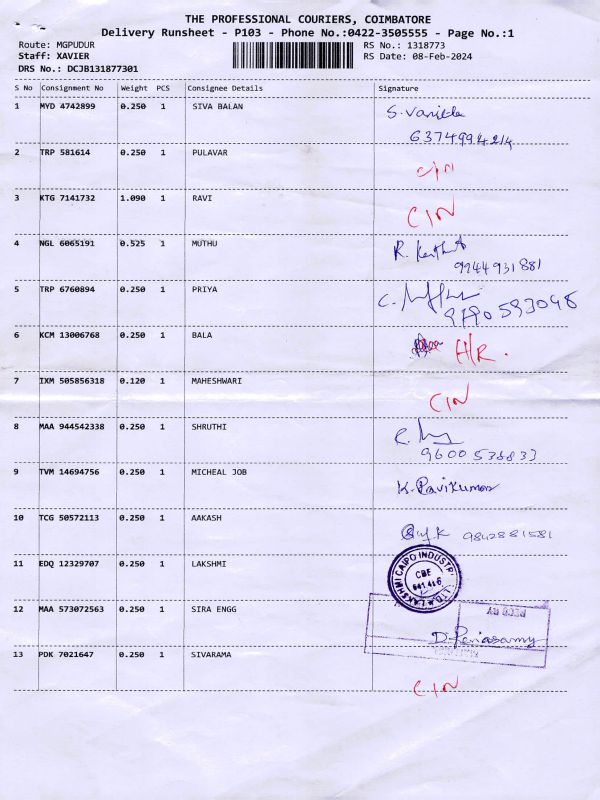 THE PROFESSIONAL COURIERS, COIMBATORE
Delivery Runsheet - P103 - Phone No.:0422-3505555 - Page No.:1
Route: MGPUDUR RS No.: 1318773
Staff: XAVIER RS Date: 08-Feb-2024
DRS No.: DCJB131877301
S No Consignment No Weight PCS Consignee Details Signature
1 MYD 4742899 0.250 1 SIVA BALAN
2 TRP 581614 0.250 1 PULAVAR CIN
3 KTG 7141732 1.090 1 RAVI CIN
4 NGL 6065191 0.525 1 MUTHU
9944931881
5 TRP 6760894 0.250 1 PRIYA
9790593048
6 KCM 13006768 0.250 1 BALA H/R.
7 IXM 505856318 0.120 1 MAHESHWARI CIN
8 MAA 944542338 0.250 1 SHRUTHI
9 TVM 14694756 0.250 1 MICHEAL JOB K. Ravikumar
10 TCG 50572113 0.250 1 AAKASH 9842881581
11 EDQ 12329707 0.250 1 LAKSHMI
CBE
641 416
12 MAA 573072563 0.250 1 SIRA ENGG D. Periasamy
13 PDK 7021647 0.250 1 SIVARAMA CIN